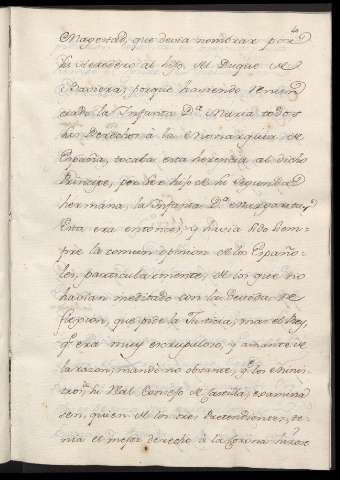 Magestad, que devia nombrar por
su heredero al hijo del Duque de
Baviera, porque haviendo renun
ciado la Infanta D.ª Maria todos
sus Derechos à la Monarquia de
España, tocaba esta herencia al dicho
Principe, por ser hijo de su segunda
hermana, la Infanta D.ª Margarita,
Esta era entonces, y havia sido siem-
pre la comun opinion de los Españo-
les, particularmente, de los que no
havian meditado con la devida re
flexion, que pide la Justicia; mas el Rey,
q.e era muy escrupuloso, y amante de
la razon, mandó no obstante, q.e los Minis
tros de su Real Consejo de Castilla, examina
sen, quien de los tres Pretendientes, te-
nia el mejor derecho à la Corona